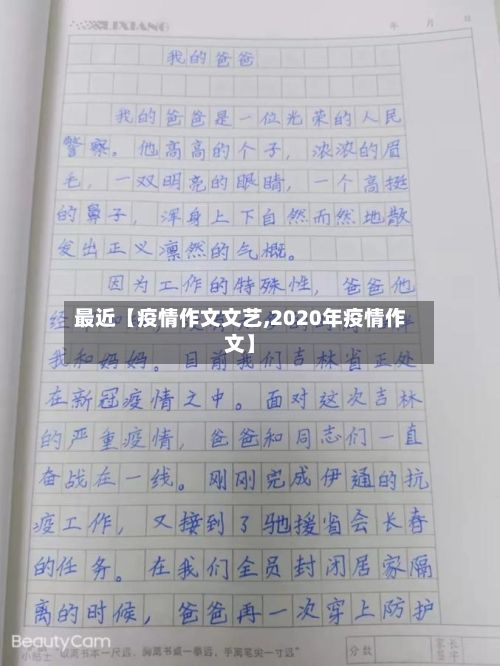 LIXIANG
年 月 日
我的爸爸
我的爸爸是一位光荣的人民
警察。他高高的个子，浓浓的眉
毛，一双明亮的眼睛，一个高挺
的鼻子，浑身上下自然而然地散
发出正义凛然的气概。
因为工作的特殊性，爸爸他
经
最近【疫情作文文艺,2020年疫情作
文】
伴
我和妈妈。目前我们吉林省正处
在新冠疫情之中。面对这次吉林
的严重疫情，爸爸和同志们一直
奋战在一线。刚刚完成伊通的抗
疫工作，又接到了驰援省会长春
的任务。在我们全员封闭居家隔
离的时候，爸爸再一次穿上防护
小贴士 眼离书本一尺远，胸离书桌一拳远，手离笔尖一寸远
分数
家长
签字
BeautyCam